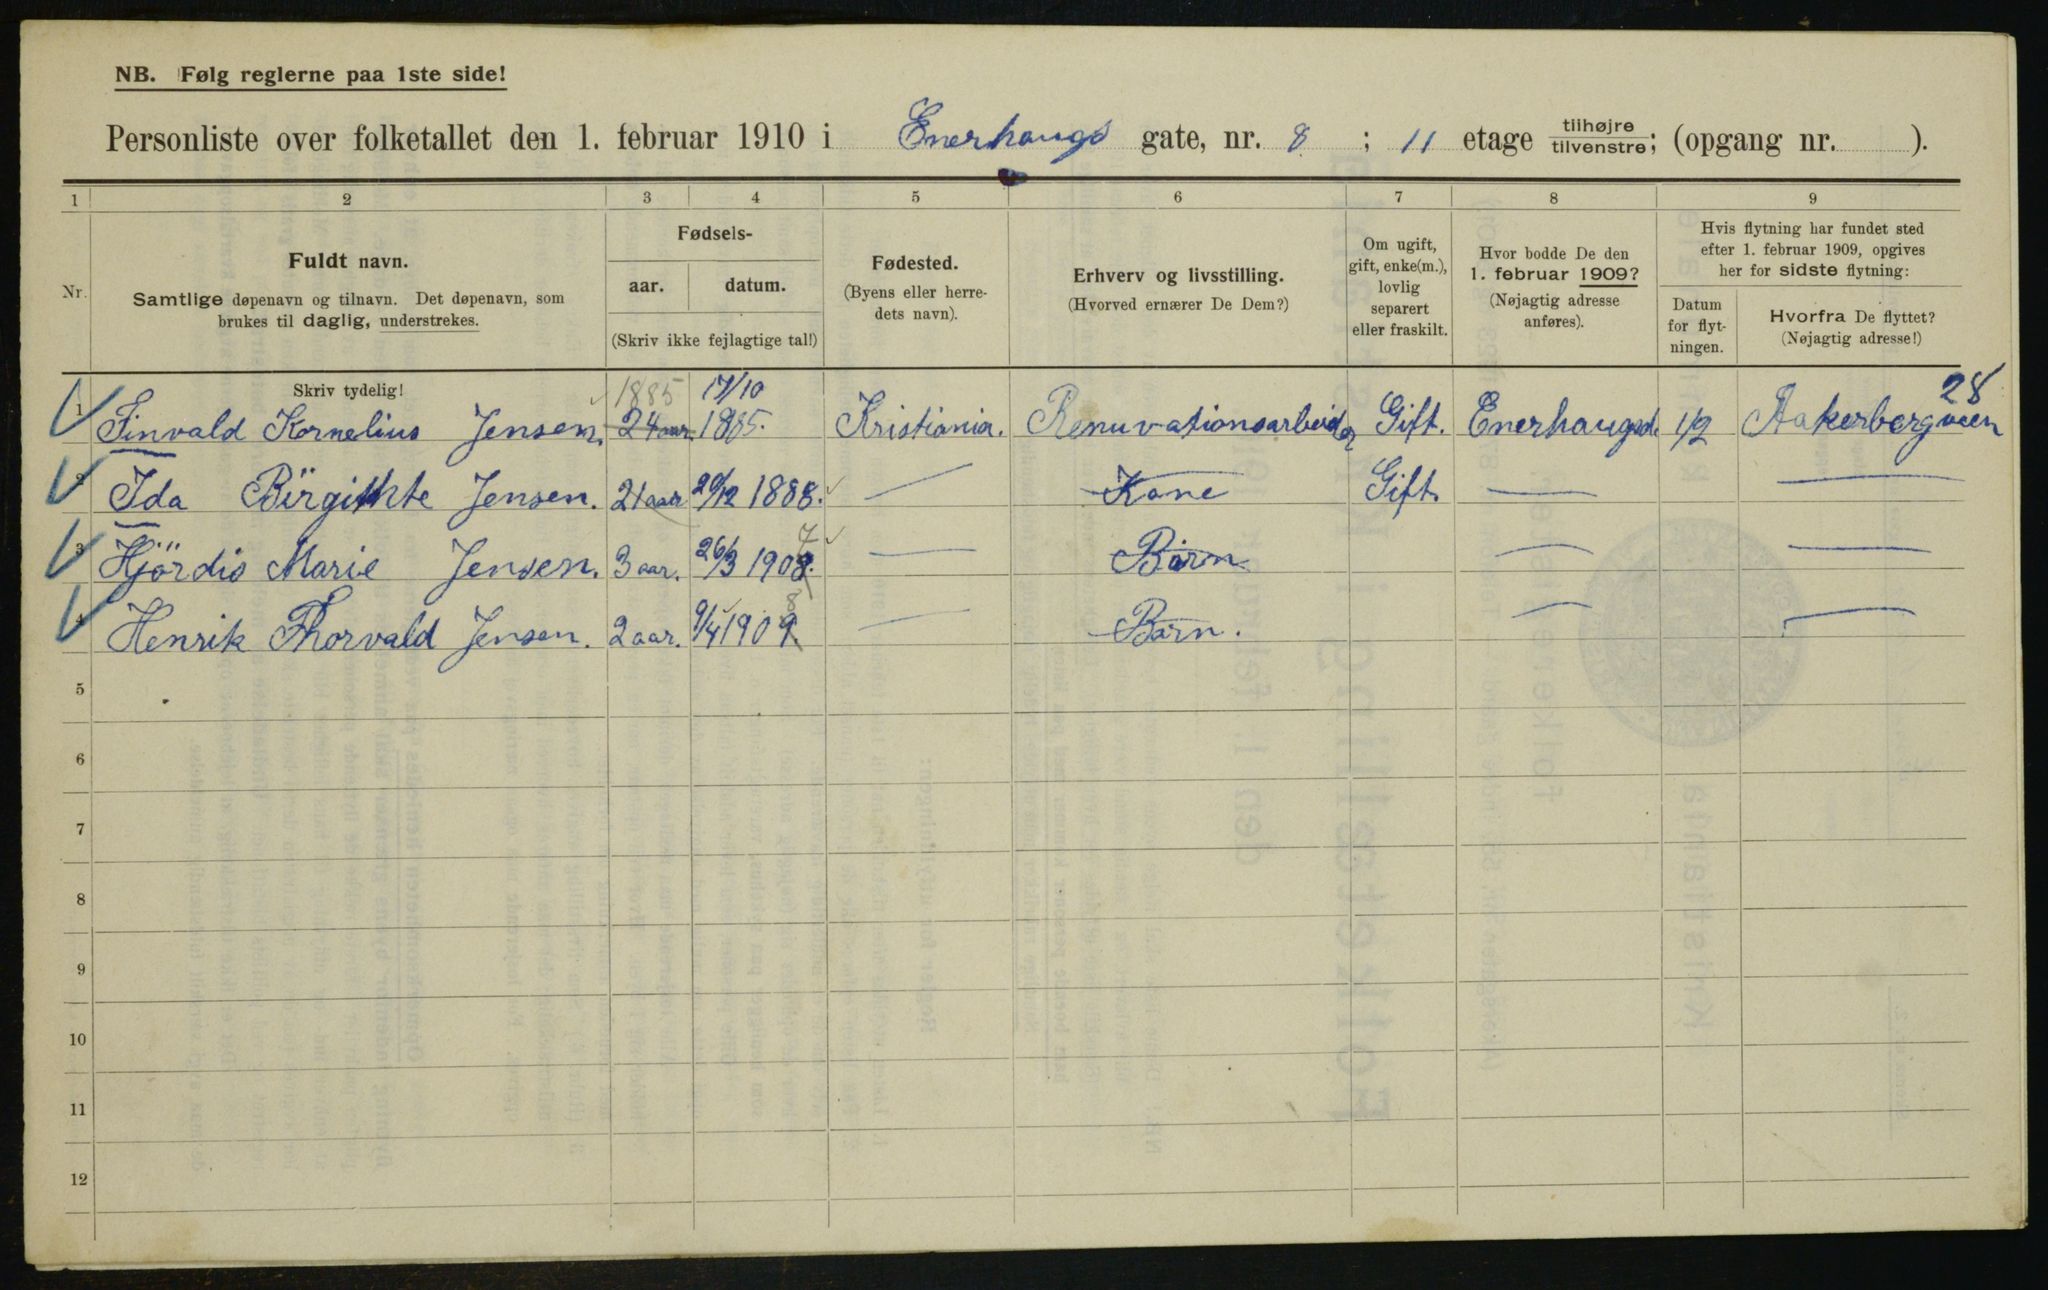 NB. Følg reglerne paa 1ste side!
Personliste over folketallet den 1. februar 1910 i Enerhaugs gate, nr. 8 ; 11 etage tilhøjre tilvenstre; (opgang nr. ).
1 2 3 4 5 6 7 8 9
Nr.
Fuldt navn.
Samtlige døpenavn og tilnavn. Det døpenavn, som
brukes til daglig, understrekes.
Fødsels-
aar. datum.
(Skriv ikke fejlagtige tal!)
Fødested.
(Byens eller herre-
dets navn).
Erhverv og livsstilling.
(Hvorved ernærer De Dem?)
Om ugift,
gift, enke(m.),
lovlig
separert
eller fraskilt.
Hvor bodde De den
1. februar 1909?
(Nøjagtig adresse
anføres).
Hvis flytning har fundet sted
efter 1. februar 1909, opgives
her for sidste flytning:
Datum
for flyt-
ningen.
Hvorfra De flyttet?
(Nøjagtig adresse!)
Skriv tydelig!
1885 17/10 28
1 Finvald Kornelius Jensen. 24 aar. 1885. Kristiania. Renuvationsarbeider Gift. Enerhaugsd. 1/2 Aakerbergveien
2 Ida Birgithte Jensen. 21 aar 20/12 1888. — Kone Gift. — —
3 Hjördis Marie Jensen. 3 aar. 26/3 1908. 7 — Barn — —
4 Henrik Thorvald Jensen. 2 aar. 9/4 1909. 8 — Barn. — —
5
6
7
8
9
10
11
12